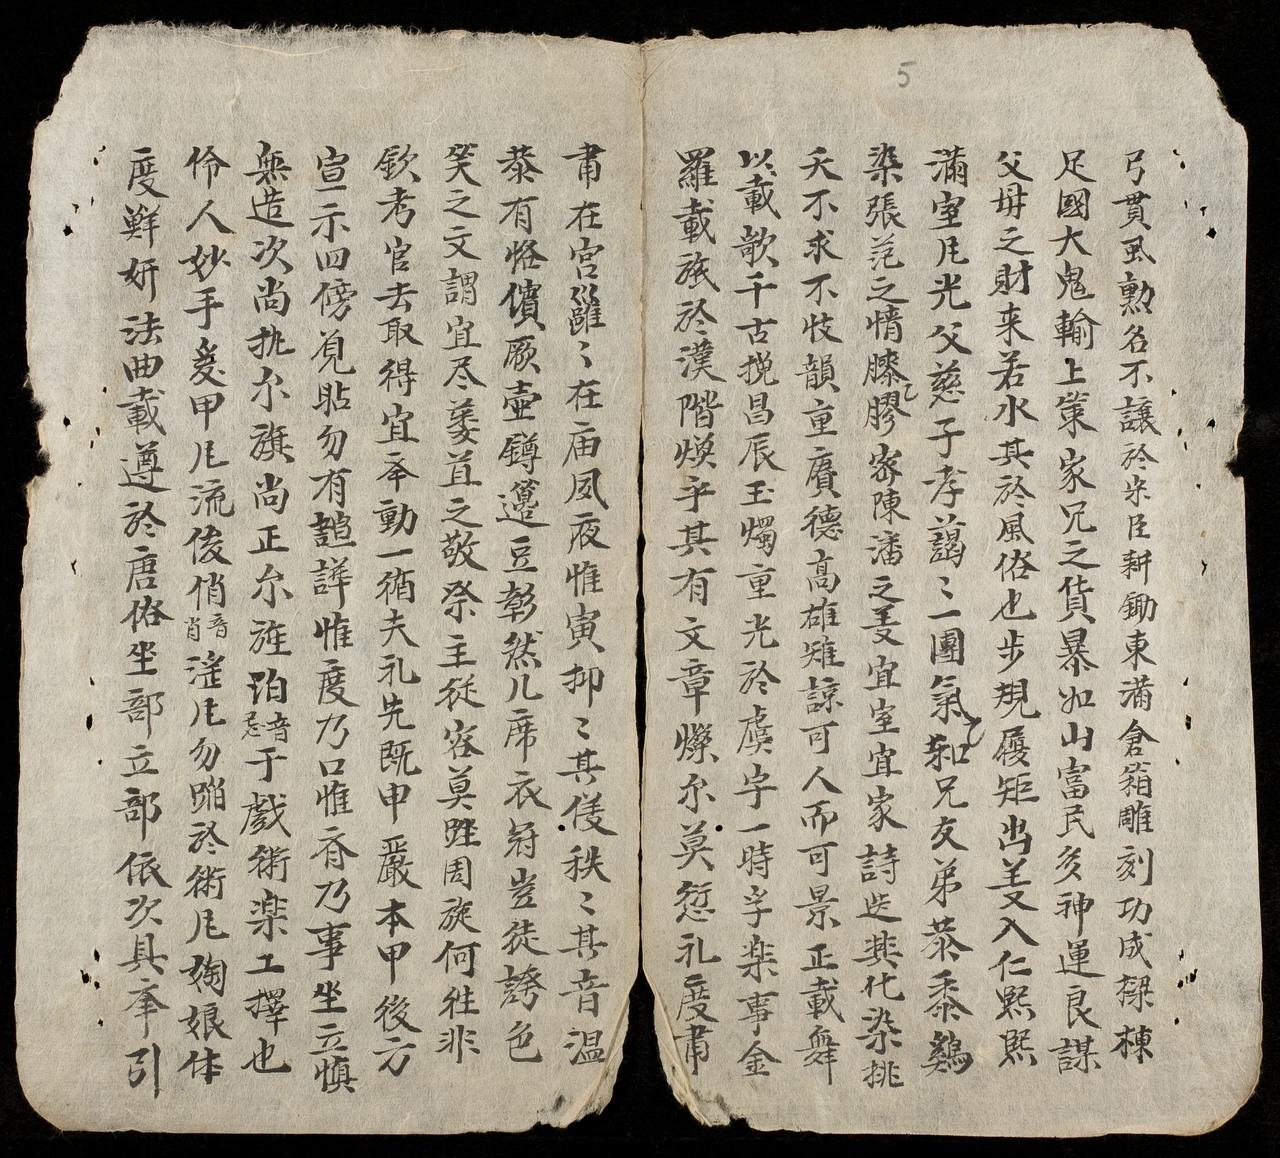 5
弓貫虱勲名不譲於米臣耕鋤東蒲倉箱雕刻功成樑棟
足國大鬼輸上策家兄之貨暴如山富民多神運良謀
父母之財来若水其於風俗也步規履矩出羙入仁熙熙
滿室凢光父慈子孝藹〻一團氣和兄友弟恭黍鷄
染張范之情膝膠宻陳潘之羙宜室宜家詩迭興化染挑
夭不求不忮韻重賡德高雄雉諒可人而可景正載舞
以載歌千古挽昌辰玉燭重光於虞字一時孚楽事金
羅載旅於漢階煥乎其有文章燦尔莫愆礼度肅
肅在宮雝〻在庙夙夜惟寅抑〻其儀秩〻其音温
恭有恪儐厥壷罇籩豆彰然几席衣冠豈徒誇色
笑之文謂宜尽萋苴之敬祭主従容莫䟴周旋何徃非
欽考官去取得宜夲動一循夫礼先既申嚴本甲後方
宣示四傍覓貼勿有諠譁惟度乃口惟脊乃事坐立慎
無造次尚执尓旗尚正尓旌珀音忌于戲術楽工擇也
伶人妙手爰甲凢流俊俏音肖滛凢勿蹈於術凢娴娘体
度鮮妍法曲載遵於唐俗坐部立部依次具夆引